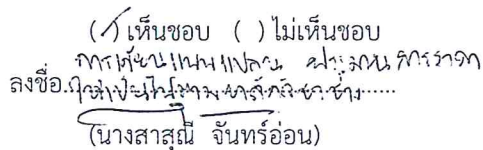 (/) เห็นชอบ ( ) ไม่เห็นชอบ
การเขียนแบบแปลน ประมาณการราคา
ลงชื่อ.ให้เป็นไปตามหลักวิชาช่าง......
(นางสาสุณี จันทร์อ่อน)